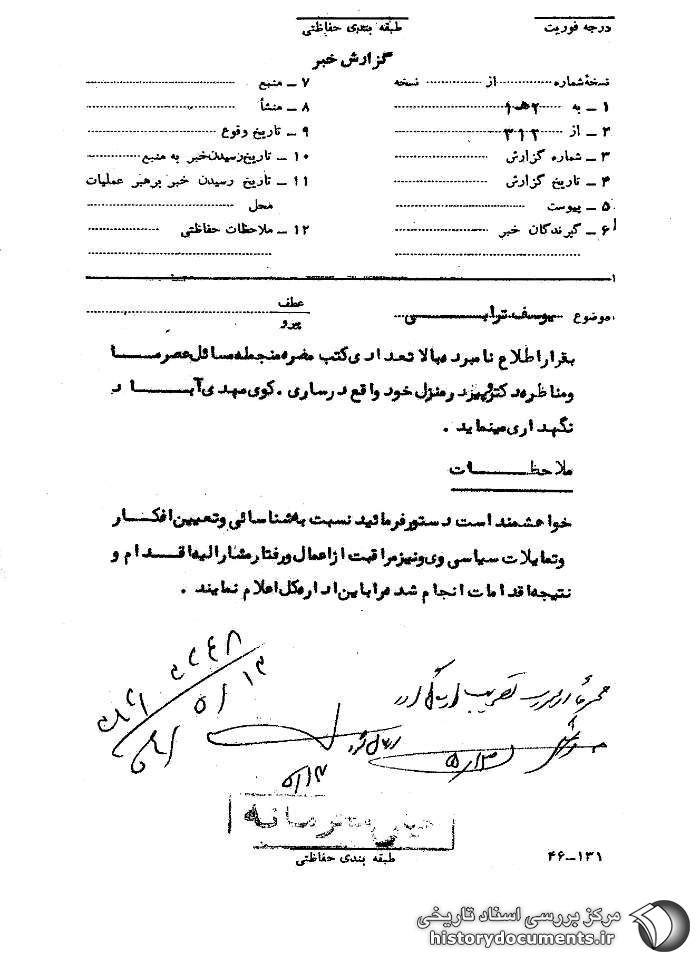 درجه فوریت
طبقه بندی حفاظتی
گزارش خبر
نسخهٔ شماره از نسخه
۱ ــ به ۲هـ۱
۲ ــ از ۳۱۲
۳ ــ شماره گزارش
۴ ــ تاریخ گزارش
۵ ــ پیوست
۶ ــ گیرندگان خبر
۷ ــ منبع
۸ ــ منشأ
۹ ــ تاریخ وقوع
۱۰ ــ تاریخ رسیدن خبر به منبع
۱۱ ــ تاریخ رسیدن خبر برهبر عملیات
محل
۱۲ ــ ملاحظات حفاظتی
موضوع یوسف ترابی
عطف
پیرو
بقرار اطلاع نامبرده بالا تعدادی کتب مضره منجمله مسائل عصر ما
و مناظره دکتر و پیر در منزل خود واقع در ساری . کوی مهدی آباد
نگهداری مینماید .
ملاحظات
خواهشمند است دستور فرمائید نسبت به شناسائی و تعیین افکار
و تمایلات سیاسی وی و نیز مراقبت از اعمال و رفتار مشارالیه اقدام و
نتیجه اقدامات انجام شده را باین اداره کل اعلام نمایند .
۵/۱۳
۵/۱۳
خیلی محرمانه
طبقه بندی حفاظتی
۱۳۱ــ۴۶
مرکز بررسی اسناد تاریخی
historydocuments.ir